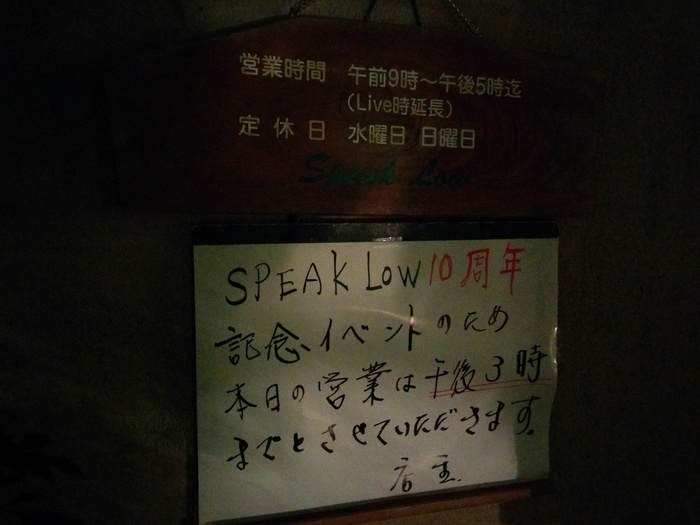 営業時間 午前9時〜午後5時迄
(Live時延長)
定休日 水曜日 日曜日
Speak Low
SPEAK LOW 10周年
記念、イベントのため
本日の営業は午後3時
までとさせていただきます。
店主.